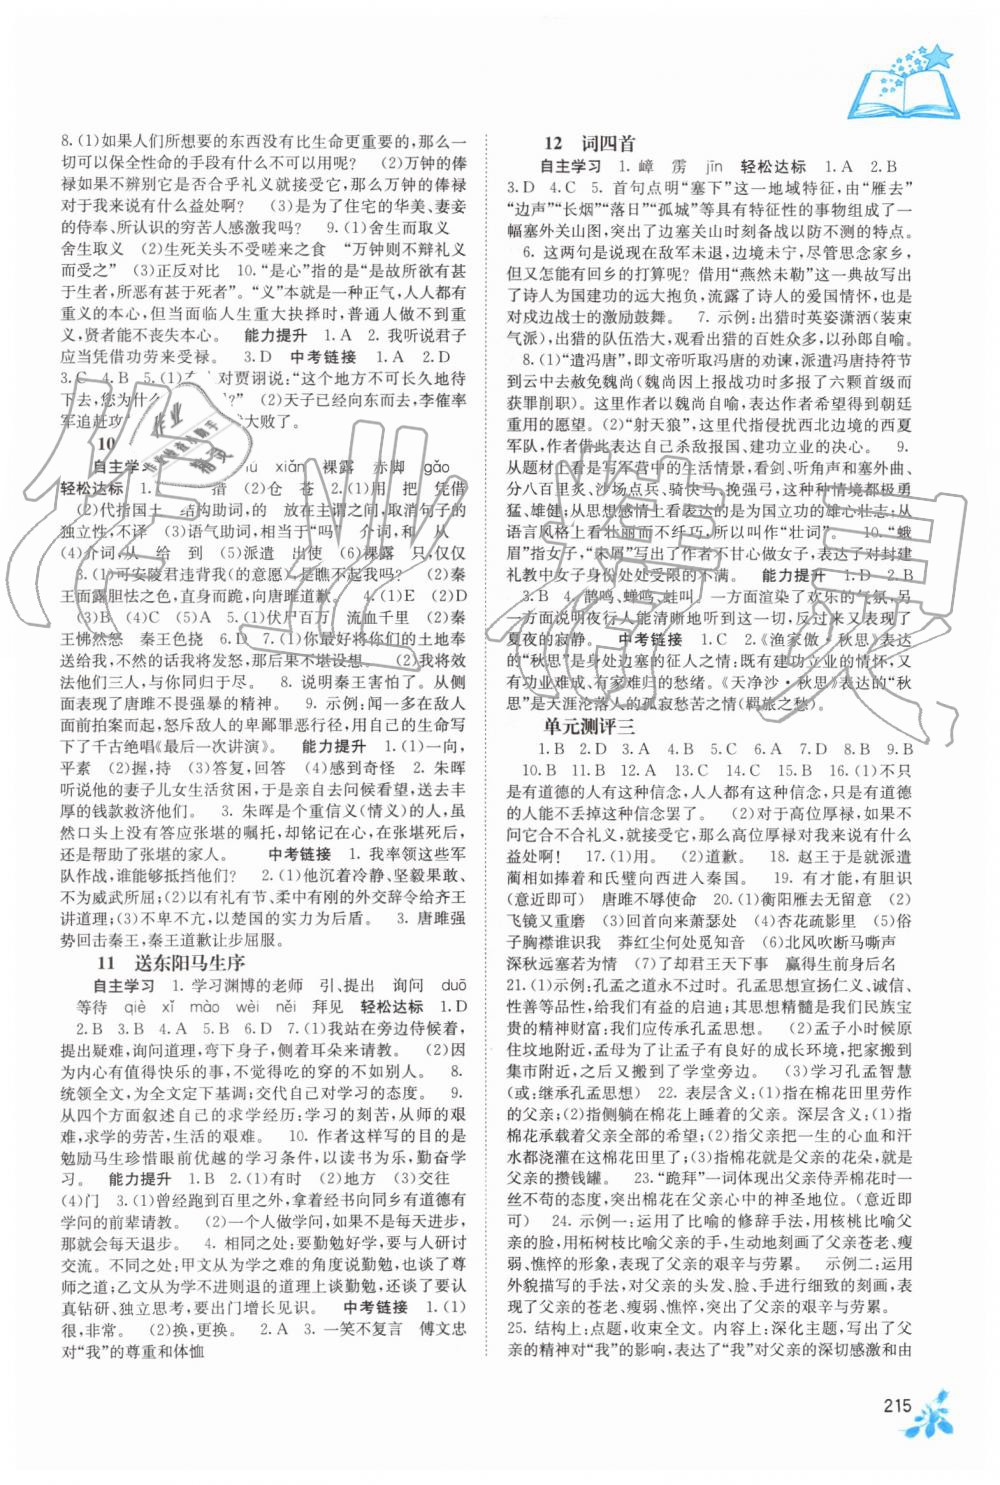 8.(1)如果人们所想要的东西没有比生命更重要的,那么一
切可以保全性命的手段有什么不可以用呢? (2)万钟的俸
禄如果不辨别它是否合乎礼义就接受它,那么万钟的俸禄
对于我来说有什么益处啊? (3)是为了住宅的华美、妻妾
的侍奉、所认识的穷苦人感激我吗? 9.(1)舍生而取义
舍生取义 (2)生死关头不受嗟来之食 “万钟则不辩礼义
而受之” (3)正反对比 10.“是心”指的是“是故所欲有甚
于生者,所恶有甚于死者”。“义”本就是一种正气,人人都有
重义的本心,但当面临人生重大抉择时,普通人做不到重
义,贤者能不丧失本心。 能力提升 1.A 2. 我听说君子
应当凭借功劳来受禄。 3.D 中考链接 1.A 2.D
3.C 4.B 5.(1) 对贾诩说:“这个地方不可长久地待
下去,您为什么 ?” (2)天子已经向东而去,李傕率
军追赶 大败了。
10
自主学 xiǎn 裸露 赤脚 gǎo
轻松达标 1. 措 (2)仓 苍 2.(1)用 把 凭借
(2)代指国土 结构助词,的 放在主谓之间,取消句子的
独立性,不译 (3)语气助词,相当于“吗” 介词,和 从
(4)介词,从 给 到 (5)派遣 出使 (6)裸露 只,仅仅
3.(1)可安陵君违背我(的意愿),是瞧不起我吗? (2)秦
王面露胆怯之色,直身而跪,向唐雎道歉。 4.(1)E (2)D
(3)B (4)C (5)A 5.(1)伏尸百万 流血千里 (2)秦
王怫然怒 秦王色挠 6.D 7.(1)你最好将你们的土地奉
送给我,不然的话我将让你后果不堪设想。 (2)我将效
法他们三人,与你同归于尽。 8. 说明秦王害怕了。从侧
面表现了唐雎不畏强暴的精神。 9. 示例:闻一多在敌人
面前拍案而起,怒斥敌人的卑鄙罪恶行径,用自己的生命写
下了千古绝唱《最后一次讲演》。 能力提升 1.(1)一向,
平素 (2)握,持 (3)答复,回答 (4)感到奇怪 2. 朱晖
听说他的妻子儿女生活贫困,于是亲自去问候看望,送去丰
厚的钱款救济他们。 3. 朱晖是个重信义(情义)的人,虽
然口头上没有答应张堪的嘱托,却铭记在心,在张堪死后,
还是帮助了张堪的家人。 中考链接 1. 我率领这些军
队作战,谁能够抵挡他们? 2.(1)他沉着冷静、坚毅果敢、
不为威武所屈;(2)以有礼有节、柔中有刚的外交辞令给齐王
讲道理;(3)不卑不亢,以楚国的实力为后盾。 3. 唐雎强
势回击秦王,秦王道歉让步屈服。
11 送东阳马生序
自主学习 1. 学习渊博的老师 引、提出 询问 duō
等待 qiè xǐ mào wèi něi 拜见 轻松达标 1.D
2.B 3.B 4.A 5.B 6.D 7.(1)我站在旁边侍候着,
提出疑难,询问道理,弯下身子,侧着耳朵来请教。 (2)因
为内心有值得快乐的事,不觉得吃的穿的不如别人。 8.
统领全文,为全文定下基调;交代自己对学习的态度。 9.
从四个方面叙述自己的求学经历:学习的刻苦,从师的艰
难,求学的劳苦,生活的艰难。 10. 作者这样写的目的是
勉励马生珍惜眼前优越的学习条件,以读书为乐,勤奋学
习。 能力提升 1.B 2.(1)有时 (2)地方 (3)交往
(4)门 3.(1)曾经跑到百里之外,拿着经书向同乡有道德有
学问的前辈请教。 (2)一个人做学问,如果不是每天进步,
那就会每天退步。 4. 相同之处:要勤勉好学,要与人研讨
交流。不同之处:甲文从为学之难的角度说勤勉,也谈了尊
师之道;乙文从为学不进则退的道理上谈勤勉,还谈了要认
真钻研、独立思考,要出门增长见识。 中考链接 1.(1)
很,非常。 (2)换,更换。 2.A 3. 一笑不复言 傅文忠
对“我”的尊重和体恤
12 词四首
自主学习 1. 嶂 雳 jīn 轻松达标 1.A 2.B
3.D 4.C 5. 首句点明“塞下”这一地域特征,由“雁去”
“边声”“长烟”“落日”“孤城”等具有特征性的事物组成了一
幅塞外关山图,突出了边塞关山时刻备战以防不测的特点。
6. 这两句是说现在敌军未退,边境未宁,尽管思念家乡,
但又怎能有回乡的打算呢? 借用“燕然未勒”这一典故写出
了诗人为国建功的远大抱负,流露了诗人的爱国情怀,也是
对戍边战士的激励鼓舞。 7. 示例:出猎时英姿潇洒(装束
气派),出猎的队伍浩大,观看出猎的百姓众多,以孙郎自喻。
8.(1)“遣冯唐”,即文帝听取冯唐的劝谏,派遣冯唐持符节
到云中去赦免魏尚(魏尚因上报战功时多报了六颗首级而
获罪削职)。作者以魏尚自喻,表达作者希望得到朝廷的
重用。 (2)“射天狼”,词中代指侵扰西北边境的西夏
军队,作者借此表达自己杀敌报国、建功立业的决心。 9.
从题材上看是写军营中的生活情景,看剑、听角声和塞外曲、
分八百里炙、沙场点兵、骑快马、挽强弓,这种种情境都极其勇
猛、雄健;从思想感情上看表达的是为国立功的雄心壮志;从
语言风格上看壮丽而不纤巧,所以叫作“壮词”。 10.“蛾
眉”指女子,“朱眉”写出了作者不甘心做女子,表达了对封建
礼教中女子身份处处受限的不满。 能力提升 1.D 2.B
3.B 4. 鹊鸣、蝉鸣、蛙叫。一方面渲染了欢乐的气氛,另
一方面说明夜行人能清晰地听到这一切,反过来又表现了
夏夜的寂静。 中考链接 1.C 2.《渔家傲·秋思》表达
的“秋思”是身处边塞的征人之情:既有建功立业的情怀,又
有功业难成、有家难归的愁绪。《天净沙·秋思》表达的“秋
思”是天涯沦落人的孤寂愁苦之情(羁旅之愁)。
单元测评三
1.B 2.D 3.A 4.B 5.C 6.A 7.D 8.B 9.B
10.B 11.B 12.A 13.C 14.C 15.B 16.(1)不只
是有道德的人有这种信念,人人都有这种信念,只是有道德
的人能不丢掉这种信念罢了。 (2)对于高位厚禄,如果不
问它合不合礼义,就接受它,那么高位厚禄对我来说有什么
益处啊! 17.(1)用。 (2)道歉。 18. 赵王于是就派遣
蔺相如捧着和氏璧向西进入秦国。 19. 有才能,有胆识
(意近即可) 唐雎不辱使命 20.(1)衡阳雁去无留意 (2)
飞镜又重磨 (3)回首向来萧瑟处 (4)杏花疏影里 (5)俗
子胸襟谁识我 莽红尘何处觅知音 (6)北风吹断马嘶声
深秋远塞若为情 (7)了却君王天下事 赢得生前身后名
21.(1)示例:孔孟之道永不过时。孔孟思想宣扬仁义、诚信、
善性等品性,给我们有益的启迪;其思想精髓是我们民族宝
贵的精神财富;我们应传承孔孟思想。 (2)孟子小时候原
住坟地附近,孟母为了让孟子有良好的成长环境,把家搬到
集市附近,之后又搬到了学堂旁边。 (3)学习孔孟智慧
(或:继承孔孟思想) 22. 表层含义:(1)指在棉花田里劳作
的父亲;(2)指侧躺在棉花上睡着的父亲。深层含义:(1)指
棉花承载着父亲全部的希望;(2)指父亲把一生的心血和汗
水都浇灌在这棉花田里了;(3)指棉花就是父亲的花朵,就是
父亲的攒钱罐。 23.“跪拜”一词体现出父亲侍弄棉花时一
丝不苟的态度,突出棉花在父亲心中的神圣地位。(意近即
可) 24. 示例一:运用了比喻的修辞手法,用核桃比喻父
亲的脸,用柘树枝比喻父亲的手,生动地刻画了父亲苍老、瘦
弱、憔悴的形象,突出了父亲的艰辛与劳累。 示例二:运用
外貌描写的手法,对父亲的头发、脸、手进行细致的刻画,表现
了父亲的苍老、瘦弱、憔悴,突出了父亲的艰辛与劳累。
25. 结构上:点题,收束全文。内容上:深化主题,写出了父
亲的精神对“我”的影响,表达了“我”对父亲的深切感激和由
215
作业精灵